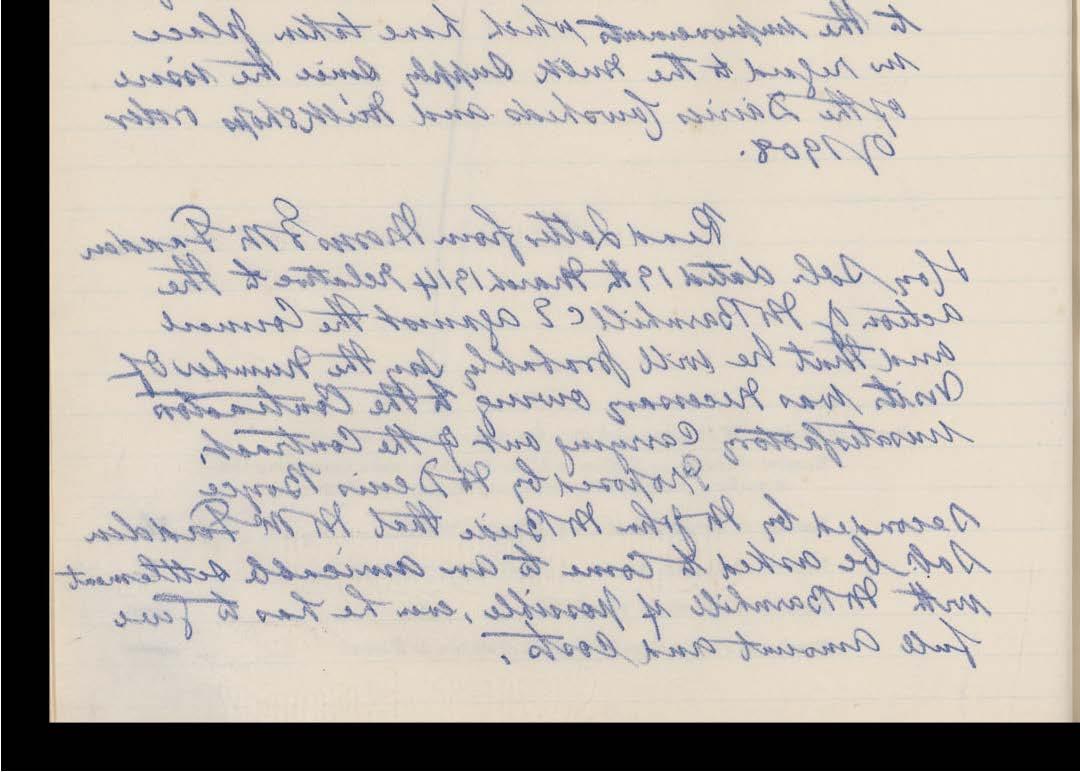 to the improvements which have taken place
in regard to the milk supply since the issue
of the Dairies Cowsheds and Milkshops order
of 1908.
Read Letter from Messrs J McFadden
Hon Sol. dated 19th March 1914 relative to the
action of Mr Barnhill C E against the Council
and that he will probably say the number of
Visits was necessary owing to the Contractors
unsatisfactory Carrying out of the Contract.
Proposed by Mr Denis Boyce
Seconded by Mr John McBride that Mr McFadden
Solr be asked to Come to an amicable settlement
with Mr Barnhill if possible, even he has to give
full amount and Costs.